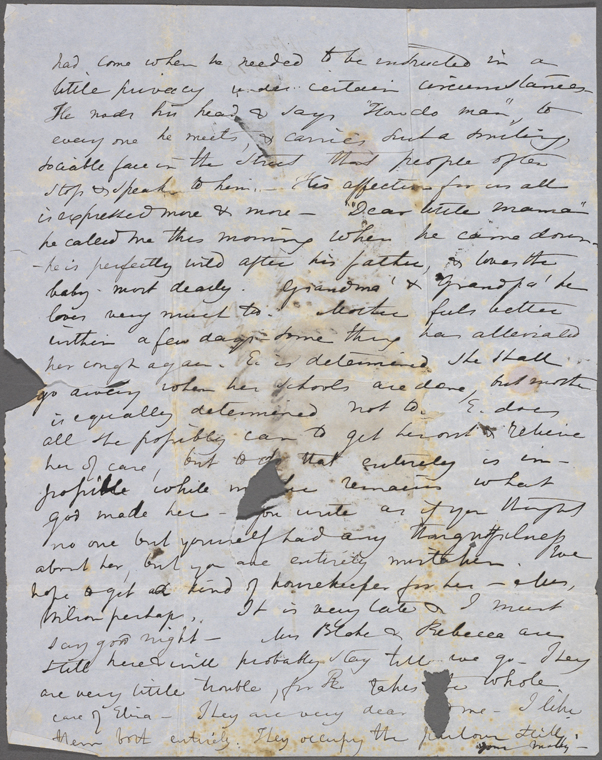 had come when he needed to be instructed in a
little privacy under certain circumstances
He nods his head & says "How do man", to
every one he meets, & carries such a smiling,
sociable face in the street that people often
stop & speak to him. - His affection for us all
is expressed more & more - "Dear little mama"
he called me this morning when he came down -
- he is perfectly wild after his father, & loves the
baby most dearly. Grandma' & 'Grandpa' he
loves very much to. Mother feels better
within a few days - some thing has alleviated
her cough again. E. is determined she shall
go away when her schools are done, but mother
is equally determined not to. E. does
all she possibly can to get her out & relieve
her of care, but to do that entirely is im-
possible while remains what
God made her - You write as if you thought
no one but yourself had any thoughtfulness
about her, but you are entirely mistaken. We
hope to get a kind of housekeeper for her - Mrs.
Wilson perhaps. It is very late & I must
say good night - Mrs Blake & Rebecca are
still here & will probably stay till we go - They
are very little trouble, for R. takes whole
care of Eliza - They are very dear me - I like
them both entirely. They occupy the parlour still.
your